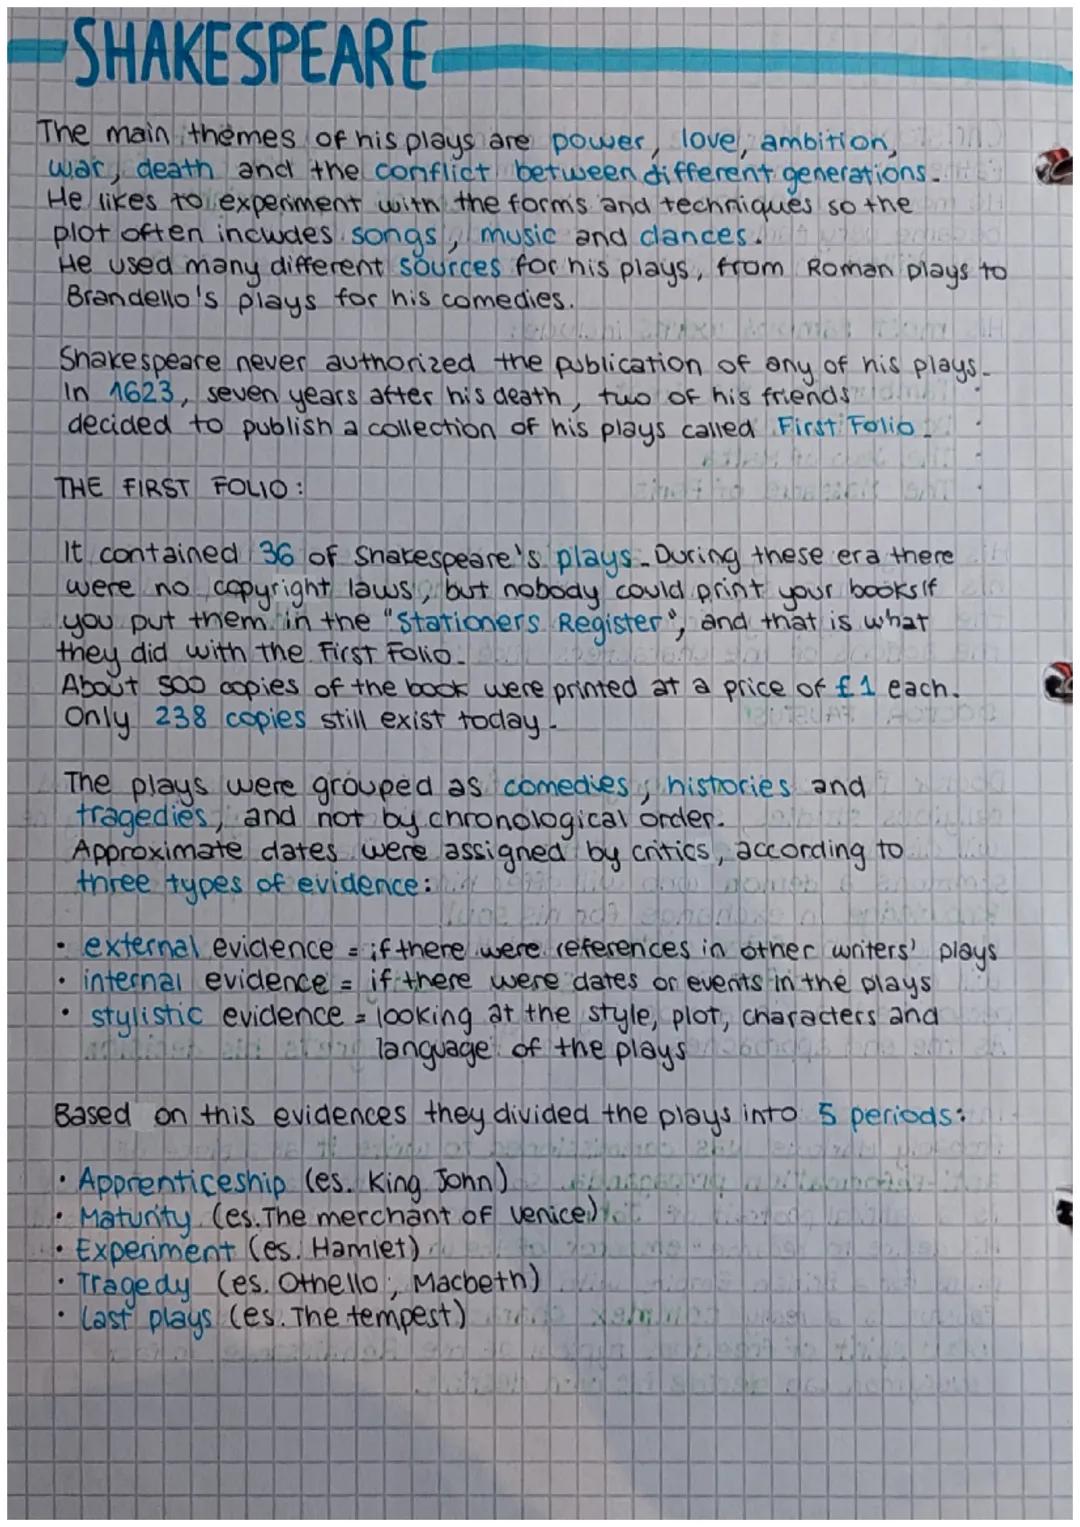 SHAKESPEARE
The main themes of his plays are power, love, ambition,
war, death and the conflict between different generations.
He likes to experiment with the forms and techniques so the
plot often includes songs, music and dances.
He used many different sources for his plays, from Roman plays to
Brandello's plays for his comedies.
Shakespeare never authorized the publication of any of his plays.
In 1623, seven years after his death, two of his friends
decided to publish a collection of his plays called First Folio.
THE FIRST FOLIO:
It contained 36 of Shakespeare's plays. During these era there
were no copyright laws, but nobody could print your books if
you put them in the "Stationers Register", and that is what
they did with the First Folio.
About 500 copies of the book were printed at a price of £1 each.
Only 238 copies still exist today.
The plays were grouped as comedies, histories and
tragedies, and not by chronological order.
Approximate dates were assigned by critics, according to
three types of evidence:
• external evidence = if there were references in other writers' plays
• internal evidence = if there were dates or events in the plays
• stylistic evidence = looking at the style, plot, characters and
language of the plays
Based on this evidences they divided the plays into 5 periods:
• Apprenticeship (es. King John)
• Maturity (es. The merchant of Venice)
• Experiment (es. Hamlet)
• Tragedy (es. Othello, Macbeth)
• Last plays (es. The tempest)